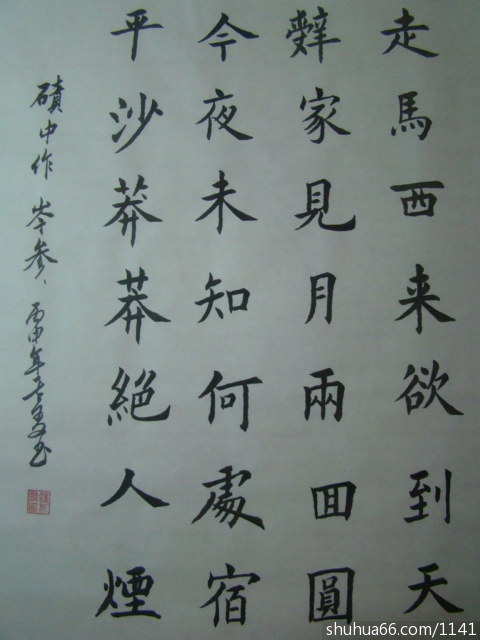 走馬西来欲到天
辤家見月兩回圓
今夜未知何處宿
平沙莽莽絕人煙
磧中作 岑參 丙申年
shuhua66.com/1141